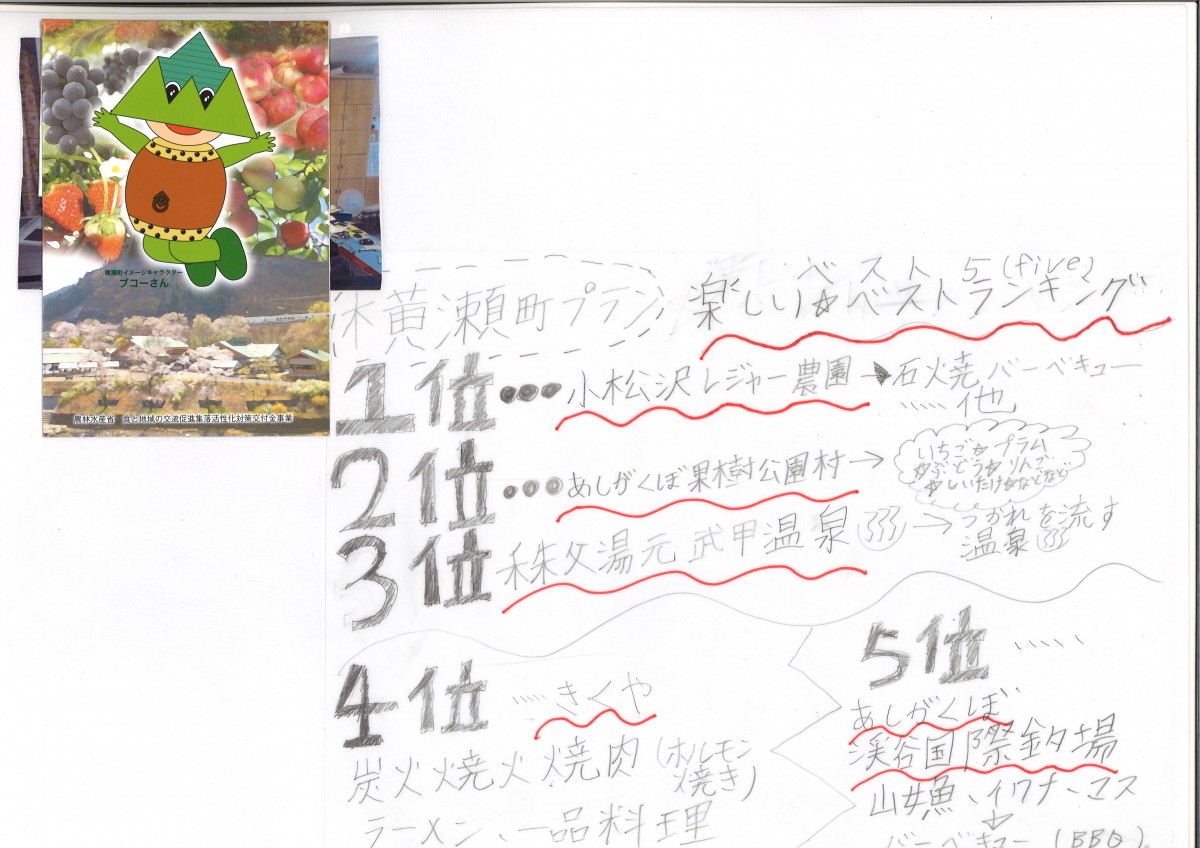 横瀬町イメージキャラクター
ブコーさん
農林水産省 食と地域の交流促進集落活性化対策交付金事業
横瀬町プラン
楽しい☆ベストランキング
ベスト5(five)
1位・・・小松沢レジャー農園→石火焼バーベキュー
他
2位・・・あしがくぼ果樹公園村→
いちご☆プラム
☆ぶどう☆りんご
☆しいたけ☆などなど
3位 秩父湯元 武甲温泉→つかれを流す
温泉
4位 ・・・・きくや
炭火焼火焼肉(ホルモン
焼き)
ラーメン、一品料理
5位・・・・・
あしがくぼ
渓谷国際釣場
山女魚、イワナ、マス
↓
バーベキュー(BBQ)